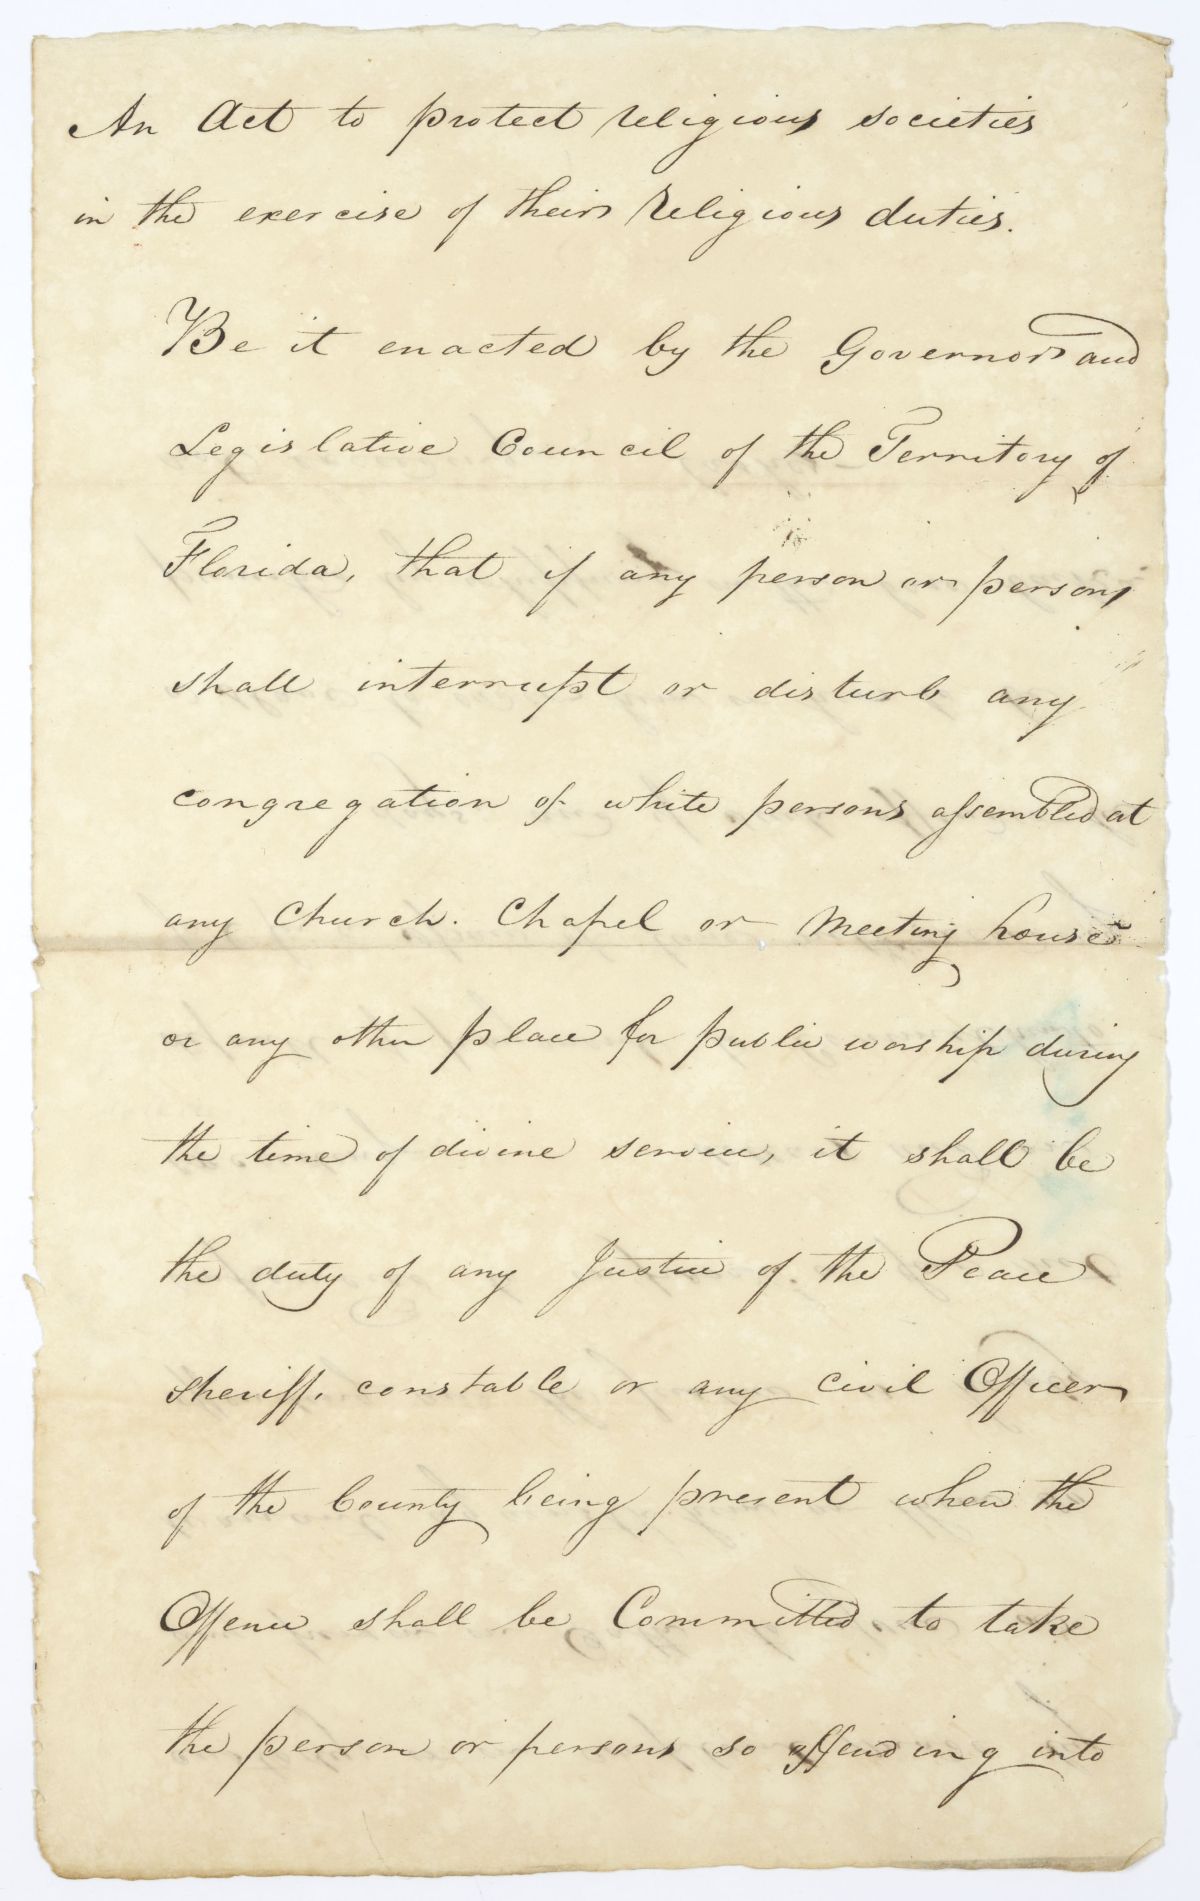 An Act to protect religious societies
in the exercise of their religious duties.
Be it enacted by the Governor and
Legislative Council of the Territory of
Florida, that if any person or persons
shall interrupt or disturb any
congregation of white persons assembled at
any Church. Chapel or Meeting house
or any other place for public worship during
the time of divine service, it shall be
the duty of any Justice of the Peace
sheriff, constable or any civil Officer
of the County being present when the
Offence shall be Committed. to take
the person or persons so offending into